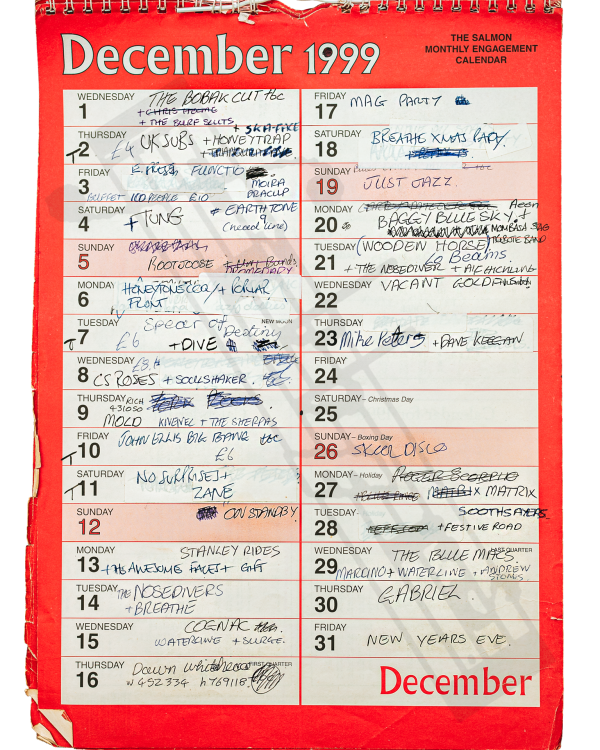 December 1999
THE SALMON
MONTHLY ENGAGEMENT
CALENDAR
WEDNESDAY
1
THE BOBAK CUT tbc
+ THE SURF SLUTS
THURSDAY
2
£4 UK SUBS + HONEYTRAP
+ SKA-FACE
FRIDAY
3
FUNCTIO
MOIRA
DRACUP
BUFFET 100 PEOPLE
SATURDAY
4
+ TUNG
EARTHTONE
(headline)
SUNDAY
5
ROOTJOOSE
MONDAY
6
HONEYTONE CODY + POPULAR
FRONT
TUESDAY
7
NEW MOON
Spear of
Destiny
£6
+ DIVE
WEDNESDAY
8
CS ROSES + SOULSHAKER
THURSDAY
9
RICH
431050
MOLD KINGNEL + THE SHERPAS
FRIDAY
10
JOHN ELLIS BIG BANG tbc
£6
SATURDAY
11
NO SURPRISES +
ZANE
SUNDAY
12
ON STANDBY
MONDAY
13
STANLEY RIDES
+ THE AWESOME FACES + GIFT
TUESDAY
14
THE NOSEDIVERS
+ BREATHE
WEDNESDAY
15
COGNAC
WATERLINE + SURGE
THURSDAY
16
FIRST QUARTER
Dawn
w 452334 h 769118
FRIDAY
17
MAG PARTY
SATURDAY
18
BREATHE XMAS PARTY
SUNDAY
19
JUST JAZZ.
MONDAY
20
BAGGY BLUE SKY +
MOMBASA
TUESDAY
21
(WOODEN HORSE)
Beams
+ THE NOSEDIVER +
WEDNESDAY
22
VACANT
THURSDAY
23
Mike Peters + DAVE KEEGAN
FRIDAY
24
SATURDAY – Christmas Day
25
SUNDAY – Boxing Day
26
DISCO
MONDAY – Holiday
27
ROGER SCORPIO
MATRIX
TUESDAY
28
SOOTHSAYERS
+ FESTIVE ROAD
WEDNESDAY
29
LAST QUARTER
THE BLUE MACS.
MARCINO + WATERLINE + ANDREW
THURSDAY
30
GABRIEL.
FRIDAY
31
NEW YEARS EVE.
December